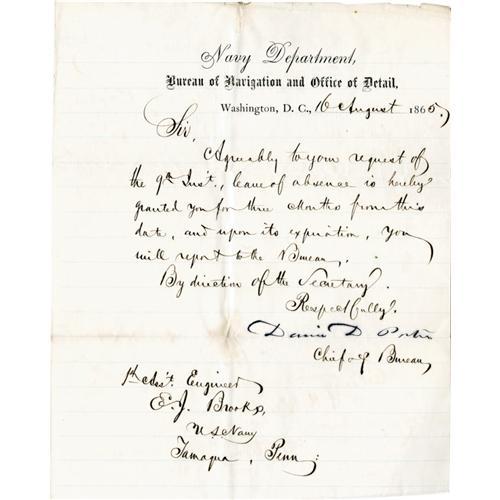 Navy Department,
Bureau of Navigation and Office of Detail,
Washington, D. C., 16 August 1865.
Sir,
Agreeably to your request of
the 9th Inst., leave of absence is hereby
granted you for three months from this
date, and upon its expiration, you
will report to the Bureau.
By direction of the Secretary.
Respectfully.
David D Porter
Chief of Bureau
1st Asst. Engineer
E. J. Brooks,
U.S. Navy
Tamaqua, Penn: